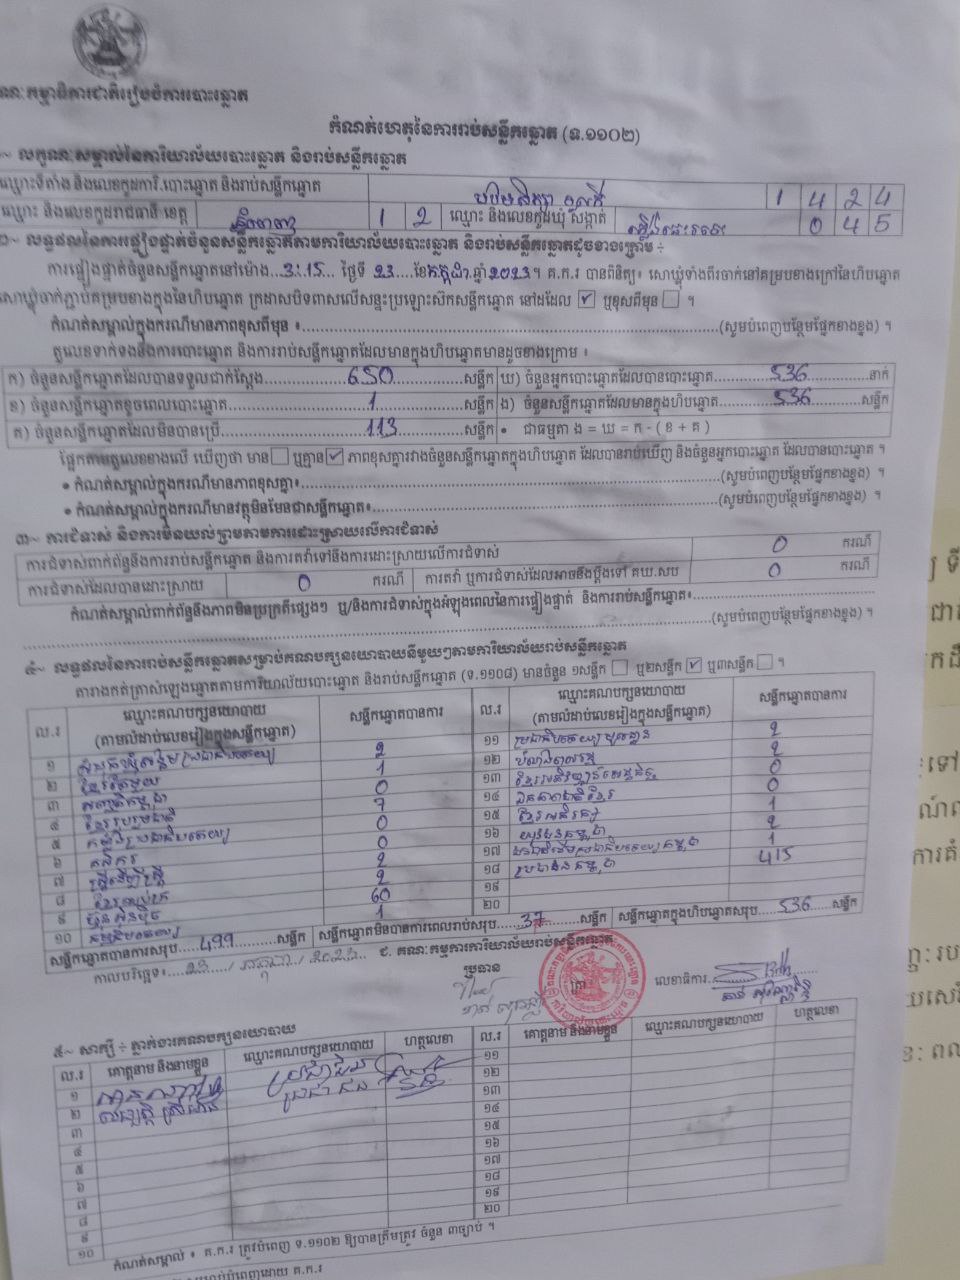 គណៈកម្មាធិការជាតិរៀបចំការបោះឆ្នោត
កំណត់ហេតុនៃការរាប់សន្លឹកឆ្នោត (ទ.១១០២)
១~ លក្ខណៈសម្គាល់នៃការិយាល័យបោះឆ្នោត និងរាប់សន្លឹកឆ្នោត
ឈ្មោះទីតាំង និងលេខកូដការិ.បោះឆ្នោត និងរាប់សន្លឹកឆ្នោត 1 4 2 4
ឈ្មោះ និងលេខកូដរាជធានី ខេត្ត ភ្នំពេញ 1 2 ឈ្មោះ និងលេខកូដឃុំ សង្កាត់ 0 4 5
២~ លទ្ធផលនៃការផ្ទៀងផ្ទាត់ចំនួនសន្លឹកឆ្នោតតាមការិយាល័យបោះឆ្នោត និងរាប់សន្លឹកឆ្នោតដូចខាងក្រោម ÷
ការផ្ទៀងផ្ទាត់ចំនួនសន្លឹកឆ្នោតនៅម៉ោង..3:15.. ថ្ងៃទី 23 ....ខែកក្កដា.ឆ្នាំ2023។ គ.ក.រ បានពិនិត្យ៖ សោឃ្លុំទាំងពីរចាក់នៅគម្របខាងក្រៅនៃហិបឆ្នោត
សោឃ្លុំចាក់ភ្ជាប់គម្របខាងក្នុងនៃហិបឆ្នោត ក្រដាសបិទពាសលើសន្ទះប្រឡោះសិកសន្លឹកឆ្នោត នៅដដែល ☑ ឬខុសពីមុន ☐ ។
កំណត់សម្គាល់ក្នុងករណីមានភាពខុសពីមុន ៖......(សូមបំពេញបន្ថែមផ្នែកខាងខ្នង) ។
តួលេខទាក់ទងនឹងការបោះឆ្នោត និងការរាប់សន្លឹកឆ្នោតដែលមានក្នុងហិបឆ្នោតមានដូចខាងក្រោម ៖
ក) ចំនួនសន្លឹកឆ្នោតដែលបានទទួលជាក់ស្តែង......650......សន្លឹក ឃ) ចំនួនអ្នកបោះឆ្នោតដែលបានបោះឆ្នោត......536......នាក់
ខ) ចំនួនសន្លឹកឆ្នោតខូចពេលបោះឆ្នោត......1......សន្លឹក ង) ចំនួនសន្លឹកឆ្នោតដែលមានក្នុងហិបឆ្នោត......536......សន្លឹក
គ) ចំនួនសន្លឹកឆ្នោតដែលមិនបានប្រើ......113......សន្លឹក • ជាធម្មតា ង = ឃ = ក - ( ខ + គ )
ផ្អែកតាមតួលេខខាងលើ ឃើញថា មាន ☐ ឬគ្មាន ☑ ភាពខុសគ្នារវាងចំនួនសន្លឹកឆ្នោតក្នុងហិបឆ្នោត ដែលបានរាប់ឃើញ និងចំនួនអ្នកបោះឆ្នោត ដែលបានបោះឆ្នោត ។
• កំណត់សម្គាល់ក្នុងករណីមានភាពខុសគ្នា៖......(សូមបំពេញបន្ថែមផ្នែកខាងខ្នង) ។
• កំណត់សម្គាល់ក្នុងករណីមានវត្ថុមិនមែនជាសន្លឹកឆ្នោត៖......(សូមបំពេញបន្ថែមផ្នែកខាងខ្នង) ។
៣~ ការជំទាស់ និងការមិនយល់ព្រមតាមការដោះស្រាយលើការជំទាស់
ការជំទាស់ពាក់ព័ន្ធនឹងការរាប់សន្លឹកឆ្នោត និងការតវ៉ាទៅនឹងការដោះស្រាយលើការជំទាស់ 0 ករណី
ការជំទាស់ដែលបានដោះស្រាយ 0 ករណី ការតវ៉ា ឬការជំទាស់ដែលអាចនឹងប្តឹងទៅ គឃ.សប 0 ករណី
កំណត់សម្គាល់ពាក់ព័ន្ធនឹងភាពមិនប្រក្រតីផ្សេងៗ ឬ/និងការជំទាស់ក្នុងអំឡុងពេលនៃការផ្ទៀងផ្ទាត់ និងការរាប់សន្លឹកឆ្នោត៖......
......(សូមបំពេញបន្ថែមផ្នែកខាងខ្នង) ។
៤~ លទ្ធផលនៃការរាប់សន្លឹកឆ្នោតសម្រាប់គណបក្សនយោបាយនីមួយៗតាមការិយាល័យរាប់សន្លឹកឆ្នោត
តារាងកត់ត្រាសំឡេងឆ្នោតតាមការិយាល័យបោះឆ្នោត និងរាប់សន្លឹកឆ្នោត (ទ.១១០៨) មានចំនួន ១សន្លឹក ☐ ឬ២សន្លឹក ☑ ឬ៣សន្លឹក ☐ ។
ល.រ ឈ្មោះគណបក្សនយោបាយ (តាមលំដាប់លេខរៀងក្នុងសន្លឹកឆ្នោត) សន្លឹកឆ្នោតបានការ ល.រ ឈ្មោះគណបក្សនយោបាយ (តាមលំដាប់លេខរៀងក្នុងសន្លឹកឆ្នោត) សន្លឹកឆ្នោតបានការ
១ សំបុកឃ្មុំសង្គមប្រជាធិបតេយ្យ 2 ១១ ប្រជាធិបតេយ្យមូលដ្ឋាន 2
២ ខ្មែររួបរួម 1 ១២ 2
៣ សញ្ជាតិកម្ពុជា 0 ១៣ ខ្មែរអភិវឌ្ឍន៍សេដ្ឋកិច្ច 0
៤ ខ្មែររួបរួមជាតិ 7 ១៤ ឯកភាពជាតិខ្មែរ 0
៥ កម្លាំងប្រជាធិបតេយ្យ 0 ១៥ ខ្មែរអភិរក្ស 1
៦ កសិករ 0 ១៦ យុវជនកម្ពុជា 2
៧ ស្ត្រីដើម្បីស្ត្រី 2 ១៧ 1
៨ 2 ១៨ ប្រជាជនកម្ពុជា 415
៩ ហ្វ៊ុនស៊ិនប៉ិច 60 ១៩
១០ ធម្មាធិបតេយ្យ 1 ២០
សន្លឹកឆ្នោតបានការសរុប......499......សន្លឹក សន្លឹកឆ្នោតមិនបានការពេលរាប់សរុប......37......សន្លឹក សន្លឹកឆ្នោតក្នុងហិបឆ្នោតសរុប......536......សន្លឹក
កាលបរិច្ឆេទ៖....23..../ កក្កដា / 2023.. ជ. គណៈកម្មការការិយាល័យរាប់សន្លឹកឆ្នោត
ប្រធាន ត្រា លេខាធិការ
៥~ សាក្សី ÷ ភ្នាក់ងារគណបក្សនយោបាយ
ល.រ គោត្តនាម និងនាមខ្លួន ឈ្មោះគណបក្សនយោបាយ ហត្ថលេខា ល.រ គោត្តនាម និងនាមខ្លួន ឈ្មោះគណបក្សនយោបាយ ហត្ថលេខា
១ ប្រជាជន ១១
២ ប្រជាជន ១២
៣ ១៣
៤ ១៤
៥ ១៥
៦ ១៦
៧ ១៧
៨ ១៨
៩ ១៩
១០ ២០
កំណត់សម្គាល់ ៖ គ.ក.រ ត្រូវបំពេញ ទ.១១០២ ឱ្យបានត្រឹមត្រូវ ចំនួន ៣ច្បាប់ ។